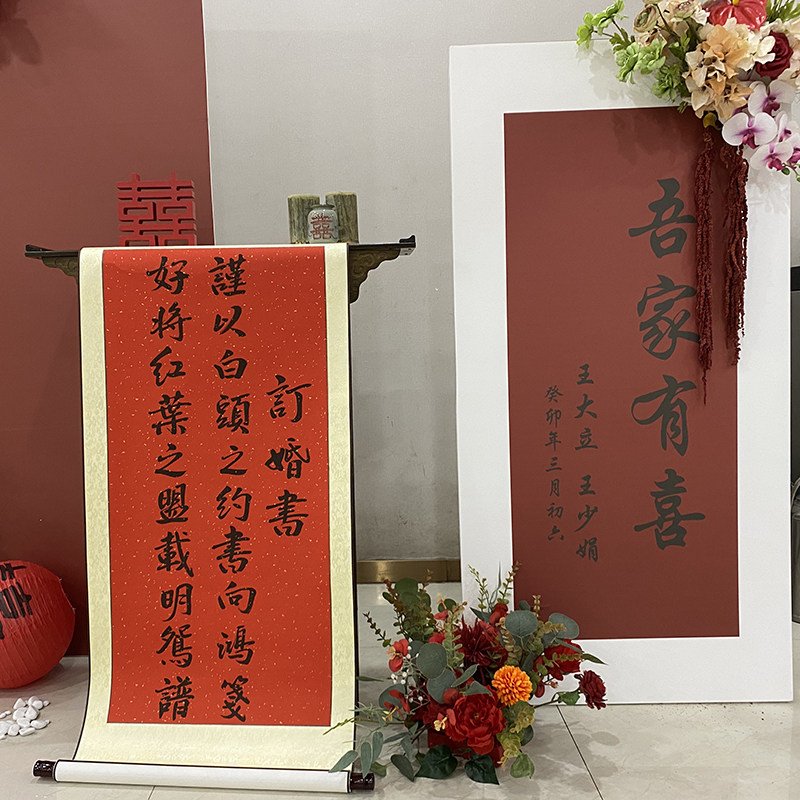 訂婚書
謹以白頭之约書向鴻箋
好将红葉之盟載明鴛譜
囍
囍
吾家有喜
王大立 王少娟
癸卯年三月初六